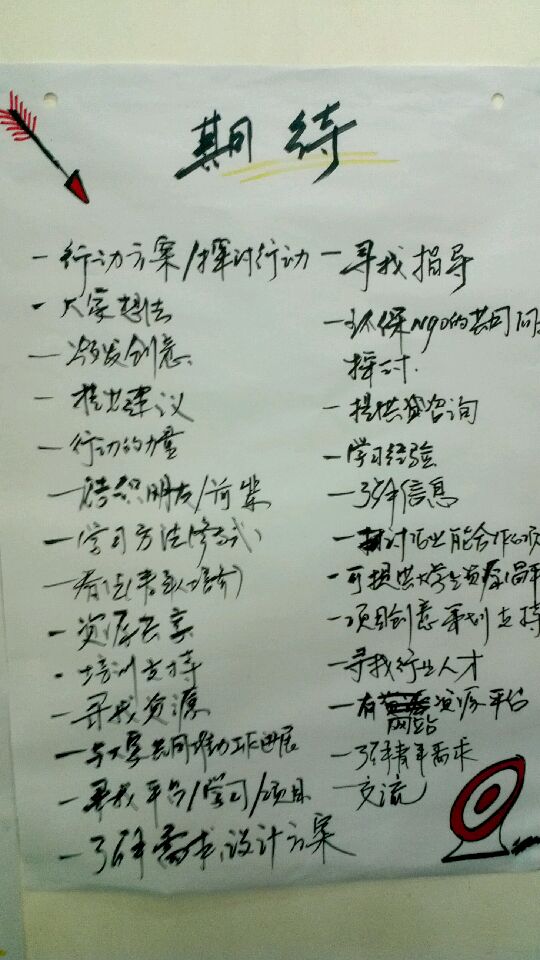 期待
一行动方案/探讨行动
一大家想法
一激发创意
一提出建议
一行动的力量
一结识朋友/前辈
一学习方法(方式)
一资源共享
一培训支持
一寻找资源
一与大家共同推动工作进展
一寻找平台/学习/项目
一了解需求,设计方案
一寻找指导
一环保NGO的共同问
探讨.
一提供咨询
一学习经验
一了解信息
一探讨可能合作的项
一可提供大学生资源
一项目创意策划支持
一寻找行业人才
一有资源平台
网站
一了解青年需求
交流